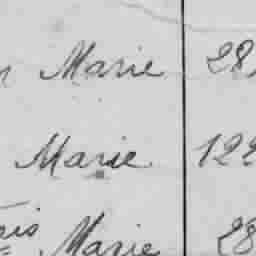 Marie 28
Marie 122
Marie 28